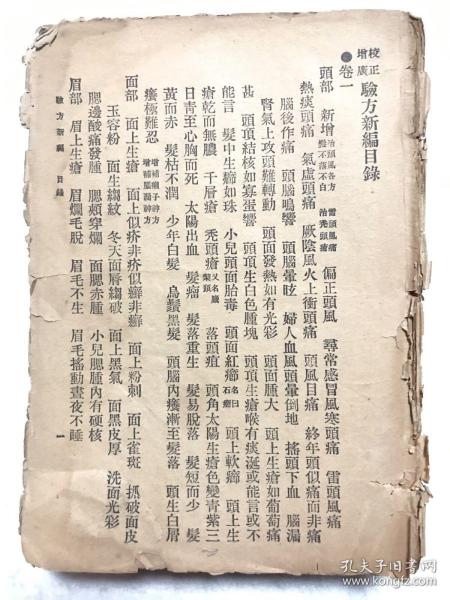 校正增廣驗方新編目錄
●卷一
頭部 新增治頭風各方髮不落不白 雷頭風痛治禿頭瘡 偏正頭風 尋常感冒風寒頭痛 雷頭風痛
熱痰頭痛 氣虛頭痛 厥陰風火上衝頭痛 頭風目痛 終年頭似痛而非痛
腦後作痛 頭腦鳴響 頭腦暈眩 婦人血風頭暈倒地 搖頭下血 腦漏
腎氣上攻頭難轉動 頭面發熱如有光彩 頭面腫大 頭上生瘡如葡萄痛
甚 頭項結核如寡蛋響 頭項生白色腫塊 頭項生瘡喉有痰涎或能言或不
能言 髮中生癤如珠 小兒頭面胎毒 頭面紅癤名曰石癤 頭上軟癤 頭上生
瘡乾而無膿 千層瘡 禿頭瘡又名臘梨頭 落頭疽 頭角太陽生瘡色變青紫三
日青至心胸而死 太陽出血 髮瘤 髮落重生 髮易脫落 髮短而少 髮
黃而赤 髮枯不潤 少年白髮 烏鬚黑髮 頭腦內癢漸至髮落 頭生白屑
癢極難忍 增補癩子神方增補風濕神方
面部 面上生瘡 面上似疥非疥似癬非癬 面上粉刺 面上雀斑 抓破面皮
玉容粉 面生縐紋 冬天面唇縐破 面上黑氣 面黑皮厚 洗面光彩
腮邊酸痛發腫 腮頰穿爛 面腮赤腫 小兒腮腫內有硬核
眉部 眉上生瘡 眉爛毛脫 眉毛不生 眉毛搖動晝夜不睡
驗方新編 目錄 一
孔夫子旧书网
www.kongfz.com